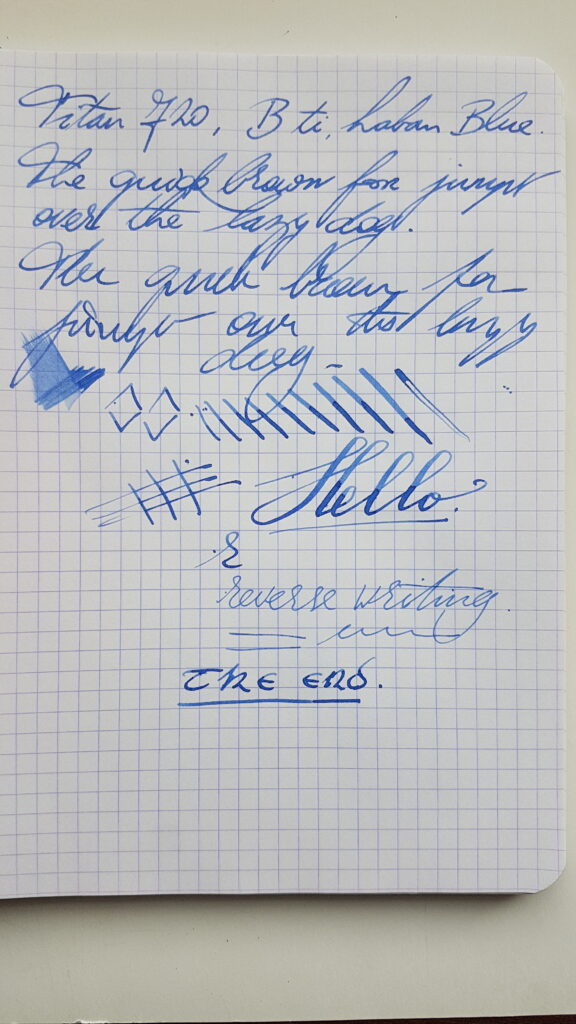 Titan 720, B ti, Laban Blue.
The quick brown fox jumps
over the lazy dog.
The quick brown fox
jumps over the lazy
dog
Hello.
r
reverse writing.
THE END.